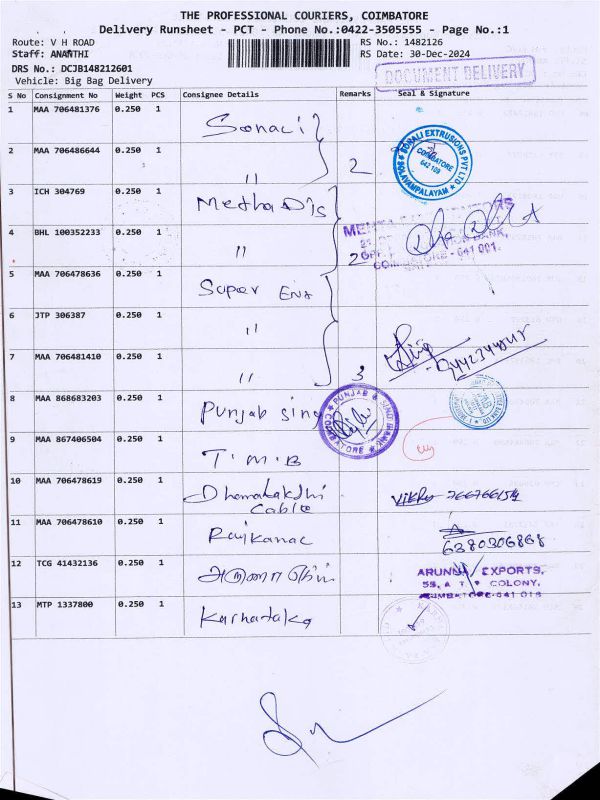 THE PROFESSIONAL COURIERS, COIMBATORE
Delivery Runsheet - PCT - Phone No.:0422-3505555 - Page No.:1
Route: V H ROAD
RS No.: 1482126
Staff: ANANTHI
RS Date: 30-Dec-2024
DRS No.: DCJB148212601
Vehicle: Big Bag Delivery
DOCUMENT DELIVERY
S No Consignment No Weight PCS Consignee Details Remarks Seal & Signature
1 MAA 706481376 0.250 1 Sonali
SONALI EXTRUSIONS PVT LTD
COIMBATORE
641 109
2 MAA 706486644 0.250 1 " 2
3 ICH 304769 0.250 1 Metha Dis
4 BHL 100352233 0.250 1 " 2
COIMBATORE - 641 001.
5 MAA 706478636 0.250 1 Super Ena
6 JTP 306387 0.250 1 "
7 MAA 706481410 0.250 1 " 3
8 MAA 868683203 0.250 1 Punjab sing
PUNJAB & SIND BANK
COIMBATORE
9 MAA 867406504 0.250 1 T.M.B
10 MAA 706478619 0.250 1 Dhanalakshi
Cable
11 MAA 706478610 0.250 1 Rajkanac
6380306868
12 TCG 41432136 0.250 1 அருணா
EXPORTS,
COLONY,
13 MTP 1337800 0.250 1 Karnataka